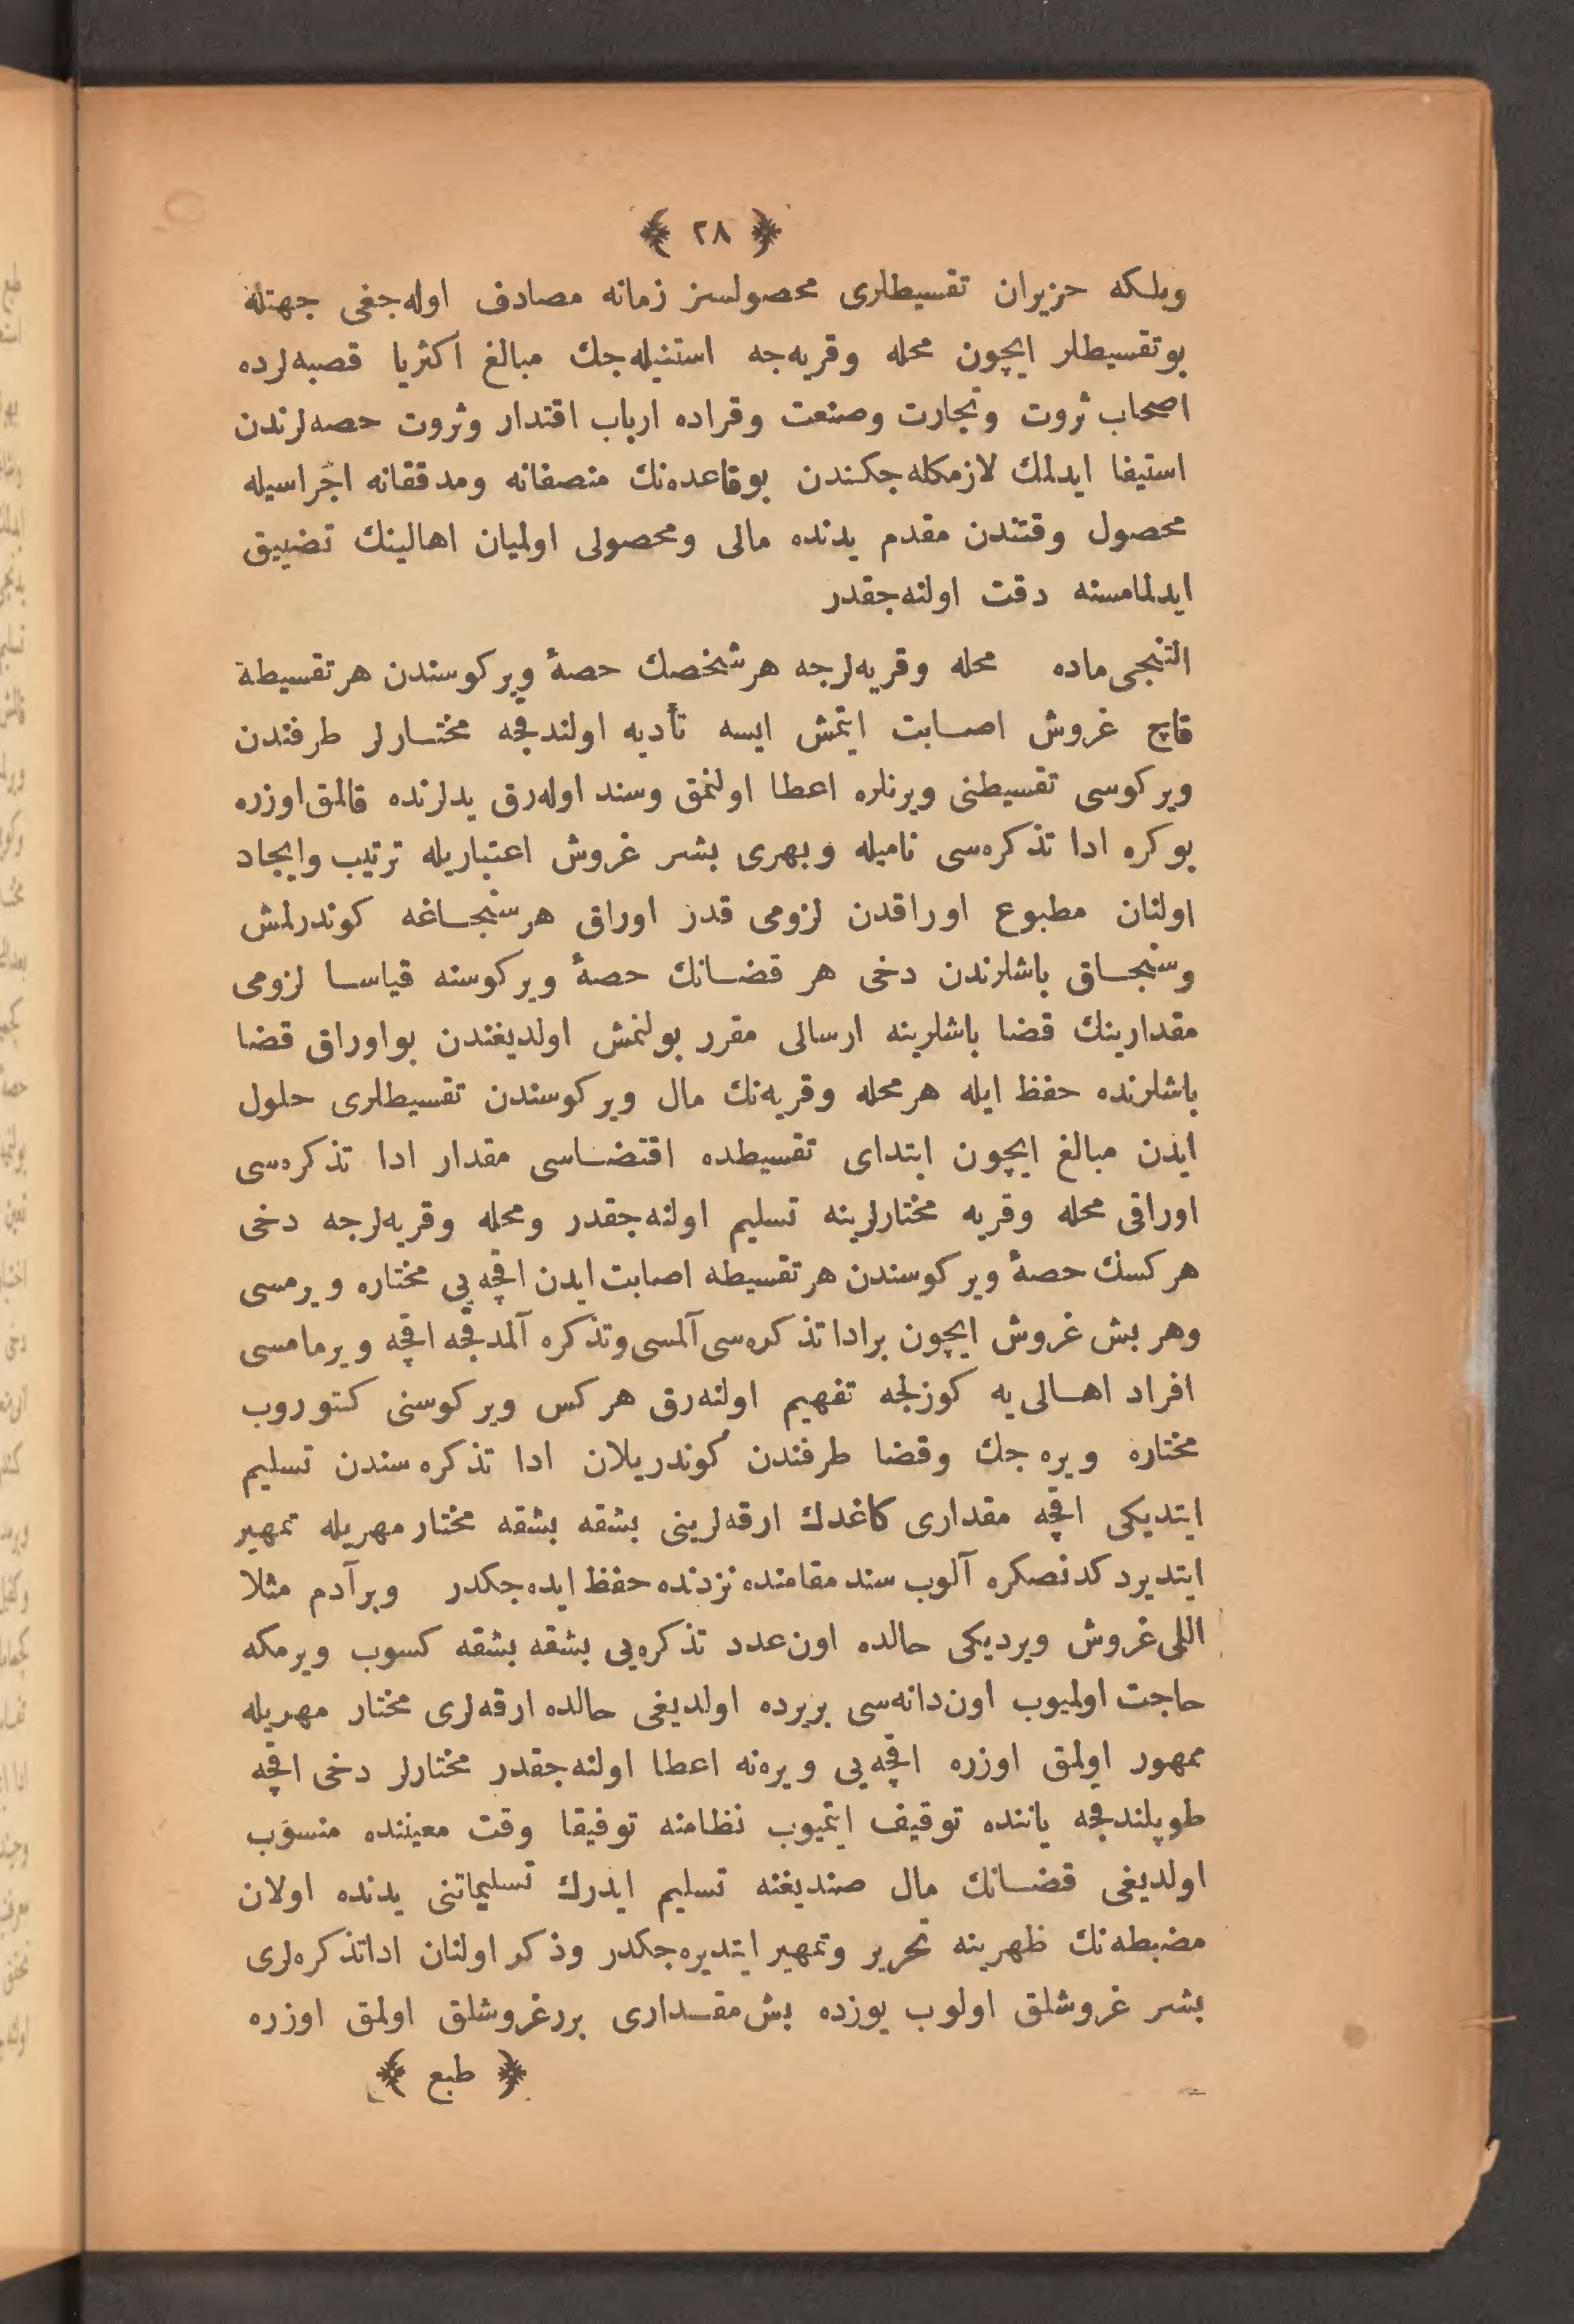 ﴿ ٢٨ ﴾
وبلكه حزيران تقسيطلرى محصولسز زمانه مصادف اوله‌جغى جهتله
بوتقسيطلر ايچون محله وقريه‌جه استنيله‌جك مبالغ اكثريا قصبه‌لرده
اصحاب ثروت وتجارت وصنعت وقراده ارباب اقتدار وثروت حصه‌لرندن
استيفا ايدلمك لازمكله‌جكندن بوقاعده‌نك منصفانه ومدققانه اجراسيله
محصول وقتندن مقدم يدنده مالى ومحصولى اولميان اهالينك تضييق
ايدلمامسنه دقت اولنه‌جقدر
التنجى ماده محله وقريه‌لرجه هرشخصك حصهٔ ويركوسندن هرتقسيطة
قاچ غروش اصابت ايتمش ايسه تأديه اولندقجه مختارلر طرفندن
ويركوسى تقسيطنى ويرنلره اعطا اولنمق وسند اوله‌رق يدلرنده قالمق اوزره
بوكره ادا تذكره‌سى ناميله وبهرى بشر غروش اعتباريله ترتيب وايجاد
اولنان مطبوع اوراقدن لزومى قدر اوراق هرسنجاغه كوندرلمش
وسنجاق باشلرندن دخى هر قضانك حصهٔ ويركوسنه قياسا لزومى
مقدارينك قضا باشلرينه ارسالى مقرر بولنمش اولديغندن بواوراق قضا
باشلرنده حفظ ايله هرمحله وقريه‌نك مال ويركوسندن تقسيطلرى حلول
ايدن مبالغ ايچون ابتداى تقسيطده اقتضاسى مقدار ادا تذكره‌سى
اوراقى محله وقريه مختارلرينه تسليم اولنه‌جقدر ومحله وقريه‌لرجه دخى
هركسك حصهٔ ويركوسندن هرتقسيطه اصابت ايدن اقچه‌يى مختاره ويرمسى
وهر بش غروش ايچون برادا تذكره‌سى آلمسى وتذكره آلمدقجه اقچه ويرمامسى
افراد اهالى‌يه كوزلجه تفهيم اولنه‌رق هركس ويركوسنى كتوروب
مختاره ويره‌جك وقضا طرفندن كوندريلان ادا تذكره‌سندن تسليم
ايتديكى اقچه مقدارى كاغدك ارقه‌لرينى بشقه بشقه مختار مهريله تمهير
ايتديردكدنصكره آلوب سند مقامنده نزدنده حفظ ايده‌جكدر وبرآدم مثلا
اللى غروش ويرديكى حالده اون‌عدد تذكره‌يى بشقه بشقه كسوب ويرمكه
حاجت اولميوب اون‌دانه‌سى بريرده اولديغى حالده ارقه‌لرى مختار مهريله
ممهور اولمق اوزره اقچه‌يى ويره‌نه اعطا اولنه‌جقدر مختارلر دخى اقچه
طوپلندقجه ياننده توقيف ايتميوب نظامنه توفيقا وقت معيننده منسوب
اولديغى قضانك مال صنديغنه تسليم ايدرك تسليماتنى يدنده اولان
مضبطه‌نك ظهرينه تحرير وتمهير ايتديره‌جكدر وذكر اولنان اداتذكره‌لرى
بشر غروشلق اولوب يوزده بش‌مقدارى بررغروشلق اولمق اوزره
﴿ طبع ﴾